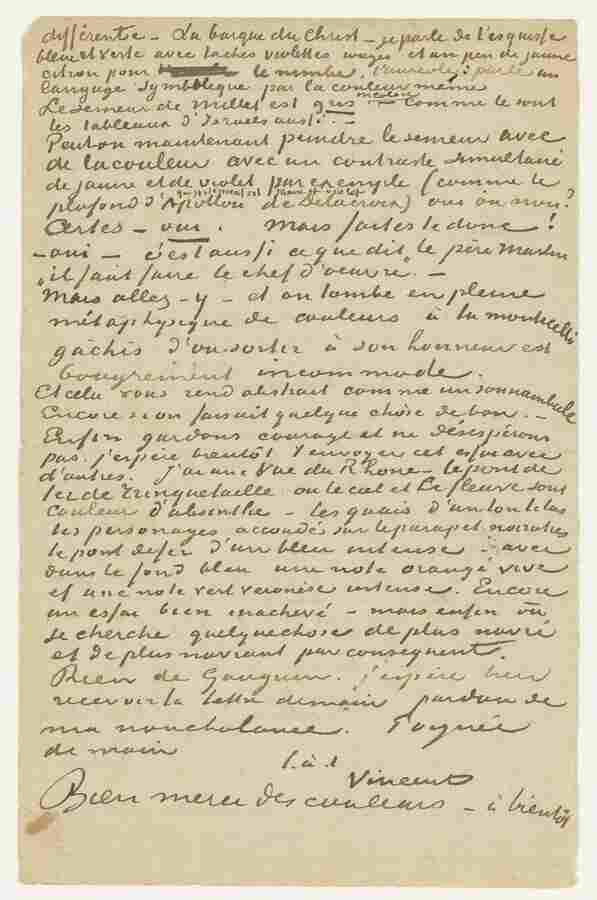 différente – La barque du Christ – je parle de l'esquisse
bleue et verte avec taches violettes rouges et un peu de jaune
citron pour le nimbe, l'auréole : parle un
langage symbolique par la couleur même
Le semeur de Millet est gris – comme le sont
incolore
les tableaux d'Israels aussi. –
Peut on maintenant peindre le semeur avec
de la couleur avec un contraste simultané
de jaune et de violet par exemple (comme le
plafond d'Apollon de Delacroix) oui ou non?
qui justement est jaune et violet
Certes – oui. Mais faites le donc!
– oui – c'est aussi ce que dit le père Martin
„il faut faire le chef d'oeuvre". –
Mais allez – y – et on tombe en pleine
métaphysique de couleurs à la monticelli
gâchis d'ou sortir à son honneur est
bougrement incommode.
Et cela vous rend abstrait comme un somnambule
Encore si on faisait quelque chose de bon. –
Enfin gardons courage et ne désespérons
pas. j'espère bientôt t'envoyer cet essai avec
d'autres. J'ai une vue du Rhone – le pont de
fer de Trinquetaille ou le ciel et le fleuve sont
couleur d'absinthe – les quais d'un ton lilas
les personnages accoudés sur le parapet noiratres
le pont de fer d'un bleu intense – avec
dans le fond bleu une note orangé vive
et une note vert veronèse intense. Encore
un essai bien inachevé – mais enfin où
je cherche quelquechose de plus navré
et de plus navrant par consequent.
Rien de Gauguin. j'espère bien
recevoir ta lettre demain pardon de
ma nonchalance. Poignée
de main
t. à t.
Vincent
Bien merci des couleurs – à bientôt